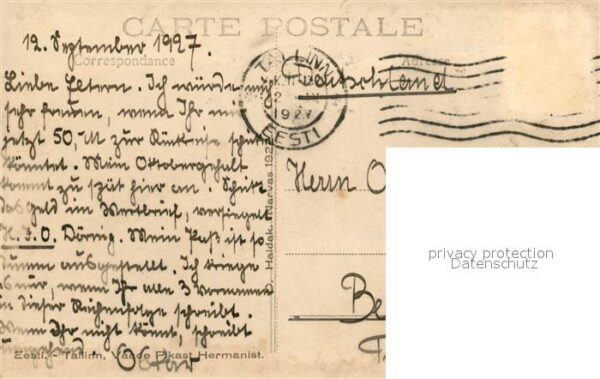 CARTE POSTALE
Correspondance
Adresse
12. September 1927.
Liebe Eltern. Ich würde mich
sehr freuen, wenn Ihr mir
jetzt 50,M zur Rückreise schicken
könntet. Mein Oktobergehalt
kommt zu spät hier an. Schickt
das Geld im Wertbrief, versiegelt
H. J. O. Döring. Mein Paß ist so
dumm ausgestellt. Ich kriege
es nur, wenn Ihr alle 3 Vornamen
in dieser Reihenfolge schreibt.
Wenn Ihr nicht könnt, schreibt
umgehend. Oskar
Eesti. - Tallinn. Vaade Pikast Hermanist.
D. Haidak. Narvas 192
TALLINN
1927
EESTI
Deutschland
Herrn O
Be
privacy protection
Datenschutz